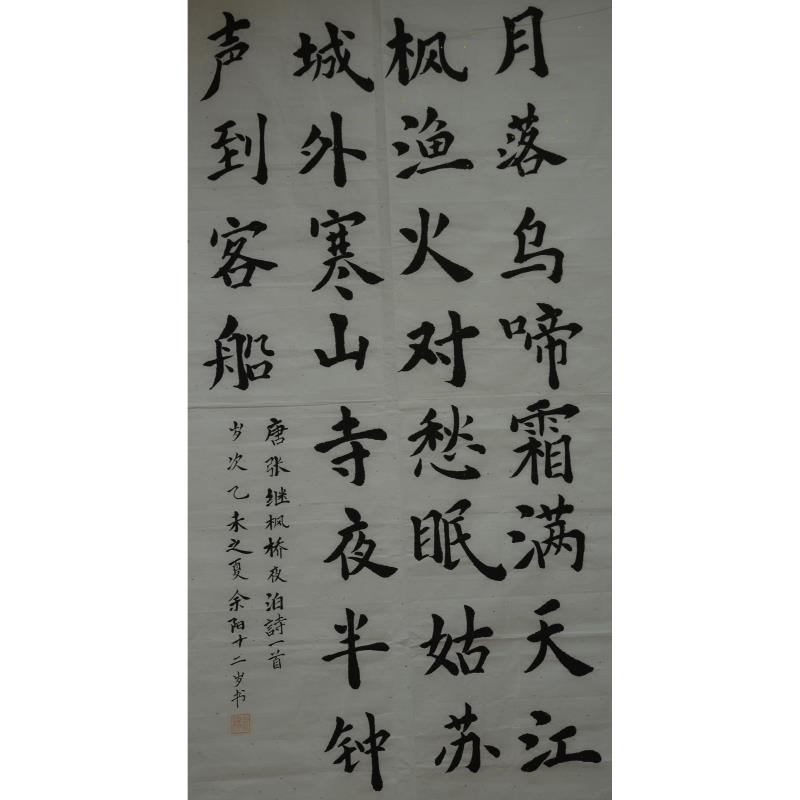 月落乌啼霜满天江
枫渔火对愁眠姑苏
城外寒山寺夜半钟
声到客船
唐张继枫桥夜泊詩一首
岁次乙未之夏余阳十二岁书